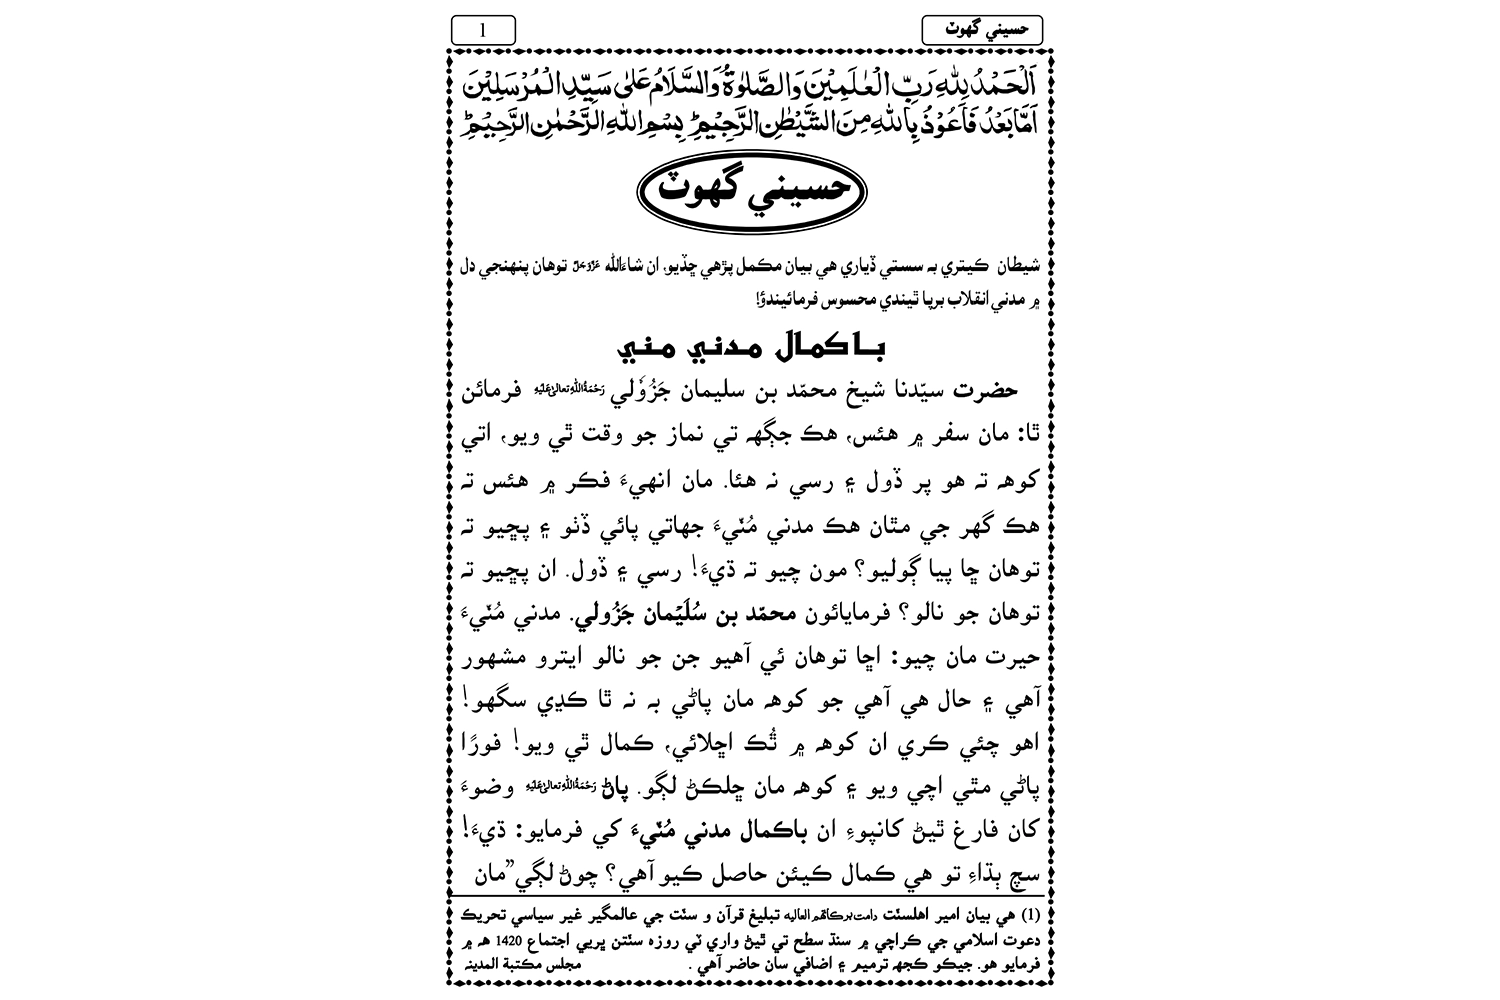 حسيني گهوٽ
1
اَلْحَمْدُ لِلّٰهِ رَبِّ الْعٰلَمِيْنَ وَالصَّلٰوةُ وَالسَّلَامُ عَلٰى سَيِّدِ الْمُرْسَلِيْنَ
اَمَّا بَعْدُ فَاَعُوْذُ بِاللّٰهِ مِنَ الشَّيْطٰنِ الرَّجِيْمِ ؕ بِسْمِ اللّٰهِ الرَّحْمٰنِ الرَّحِيْمِ ؕ
حسيني گهوٽ
شيطان ڪيتري به سستي ڏياري هي بيان مڪمل پڙهي ڇڏيو، ان شاءَالله عَزَّوَجَلَّ توهان پنهنجي دل
۾ مدني انقلاب برپا ٿيندي محسوس فرمائيندؤ!
باڪمال مدني مني
حضرت سيّدنا شيخ محمّد بن سليمان جَزُوْلي رَحْمَةُ اللّٰهِ تعالٰى عَلَيْهِ فرمائن
ٿا: مان سفر ۾ هئس، هڪ جڳهہ تي نماز جو وقت ٿي ويو، اتي
کوهہ تہ هو پر ڏول ۽ رسي نہ هئا. مان انهيءَ فڪر ۾ هئس تہ
هڪ گهر جي مٿان هڪ مدني مُنّيءَ جهاتي پائي ڏٺو ۽ پڇيو تہ
توهان ڇا پيا ڳوليو؟ مون چيو تہ ڌيءَ! رسي ۽ ڏول. ان پڇيو تہ
توهان جو نالو؟ فرمايائون محمّد بن سُلَيْمان جَزُولي. مدني مُنّيءَ
حيرت مان چيو: اڇا توهان ئي آهيو جن جو نالو ايترو مشهور
آهي ۽ حال هي آهي جو کوهہ مان پاڻي بہ نہ ٿا ڪڍي سگهو!
اهو چئي ڪري ان کوهہ ۾ ٿُڪ اڇلائي، ڪمال ٿي ويو! فورًا
پاڻي مٿي اچي ويو ۽ کوهہ مان ڇلڪڻ لڳو. پاڻ رَحْمَةُ اللّٰهِ تعالٰى عَلَيْهِ وضوءَ
کان فارغ ٿيڻ کانپوءِ ان باڪمال مدني مُنّيءَ کي فرمايو: ڌيءَ!
سچ ٻڌاءِ تو هي ڪمال ڪيئن حاصل ڪيو آهي؟ چوڻ لڳي”مان
(1) هي بيان امير اهلسنّت دامت برڪاتهم العاليه تبليغ قرآن و سنّت جي عالمگير غير سياسي تحريڪ
دعوت اسلامي جي ڪراچي ۾ سنڌ سطح تي ٿيڻ واري ٽي روزه سنّتن ڀريي اجتماع 1420 هہ ۾
فرمايو هو. جيڪو ڪجهہ ترميم ۽ اضافي سان حاضر آهي . مجلس مڪتبة المدينہ